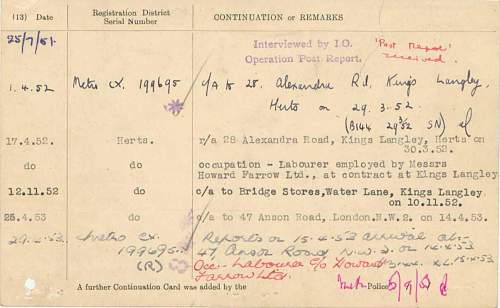 (13) Date Registration District Serial Number CONTINUATION or REMARKS
25/7/51. Interviewed by I.O. 'Post Report'
Operation Post Report. received.
1.4.52 Metro Cx. 199695 c/A to 28. Alexandra Rd, Kings Langley,
Herts on 29.3.52.
(B144 29/3/52 SN)
17.4.52. Herts. r/a 28 Alexandra Road, Kings Langley, Herts on
30.3.52.
do do occupation - Labourer employed by Messrs
Howard Farrow Ltd., at contract at Kings Langley
12.11.52 do c/a to Bridge Stores, Water Lane, Kings Langley
on 10.11.52.
25.4.53 do c/a to 47 Anson Road, London.N.W.2. on 14.4.53.
29.4.53 Metro Cx. Reports on 15.4.53 arrival at:-
199695 47, Anson Road, N.W.2. on 14.4.53
(R) Occ:- Labourer c/o Howard
Farrow Ltd. 15.4.53
A further Continuation Card was added by the Police